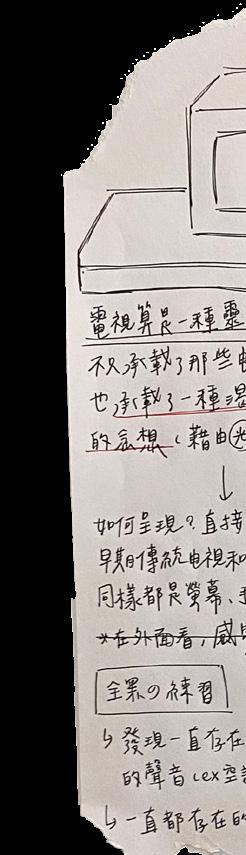 電視算是一種靈
不只承載了那些
也承載了一種
的念想(藉由光
↓
如何呈現?直接
早期傳統電視和
同樣都是螢幕、
*在外面看,感
全黑の練習
↳ 發現一直存在
的聲音(ex空調
↳ 一直都存在的